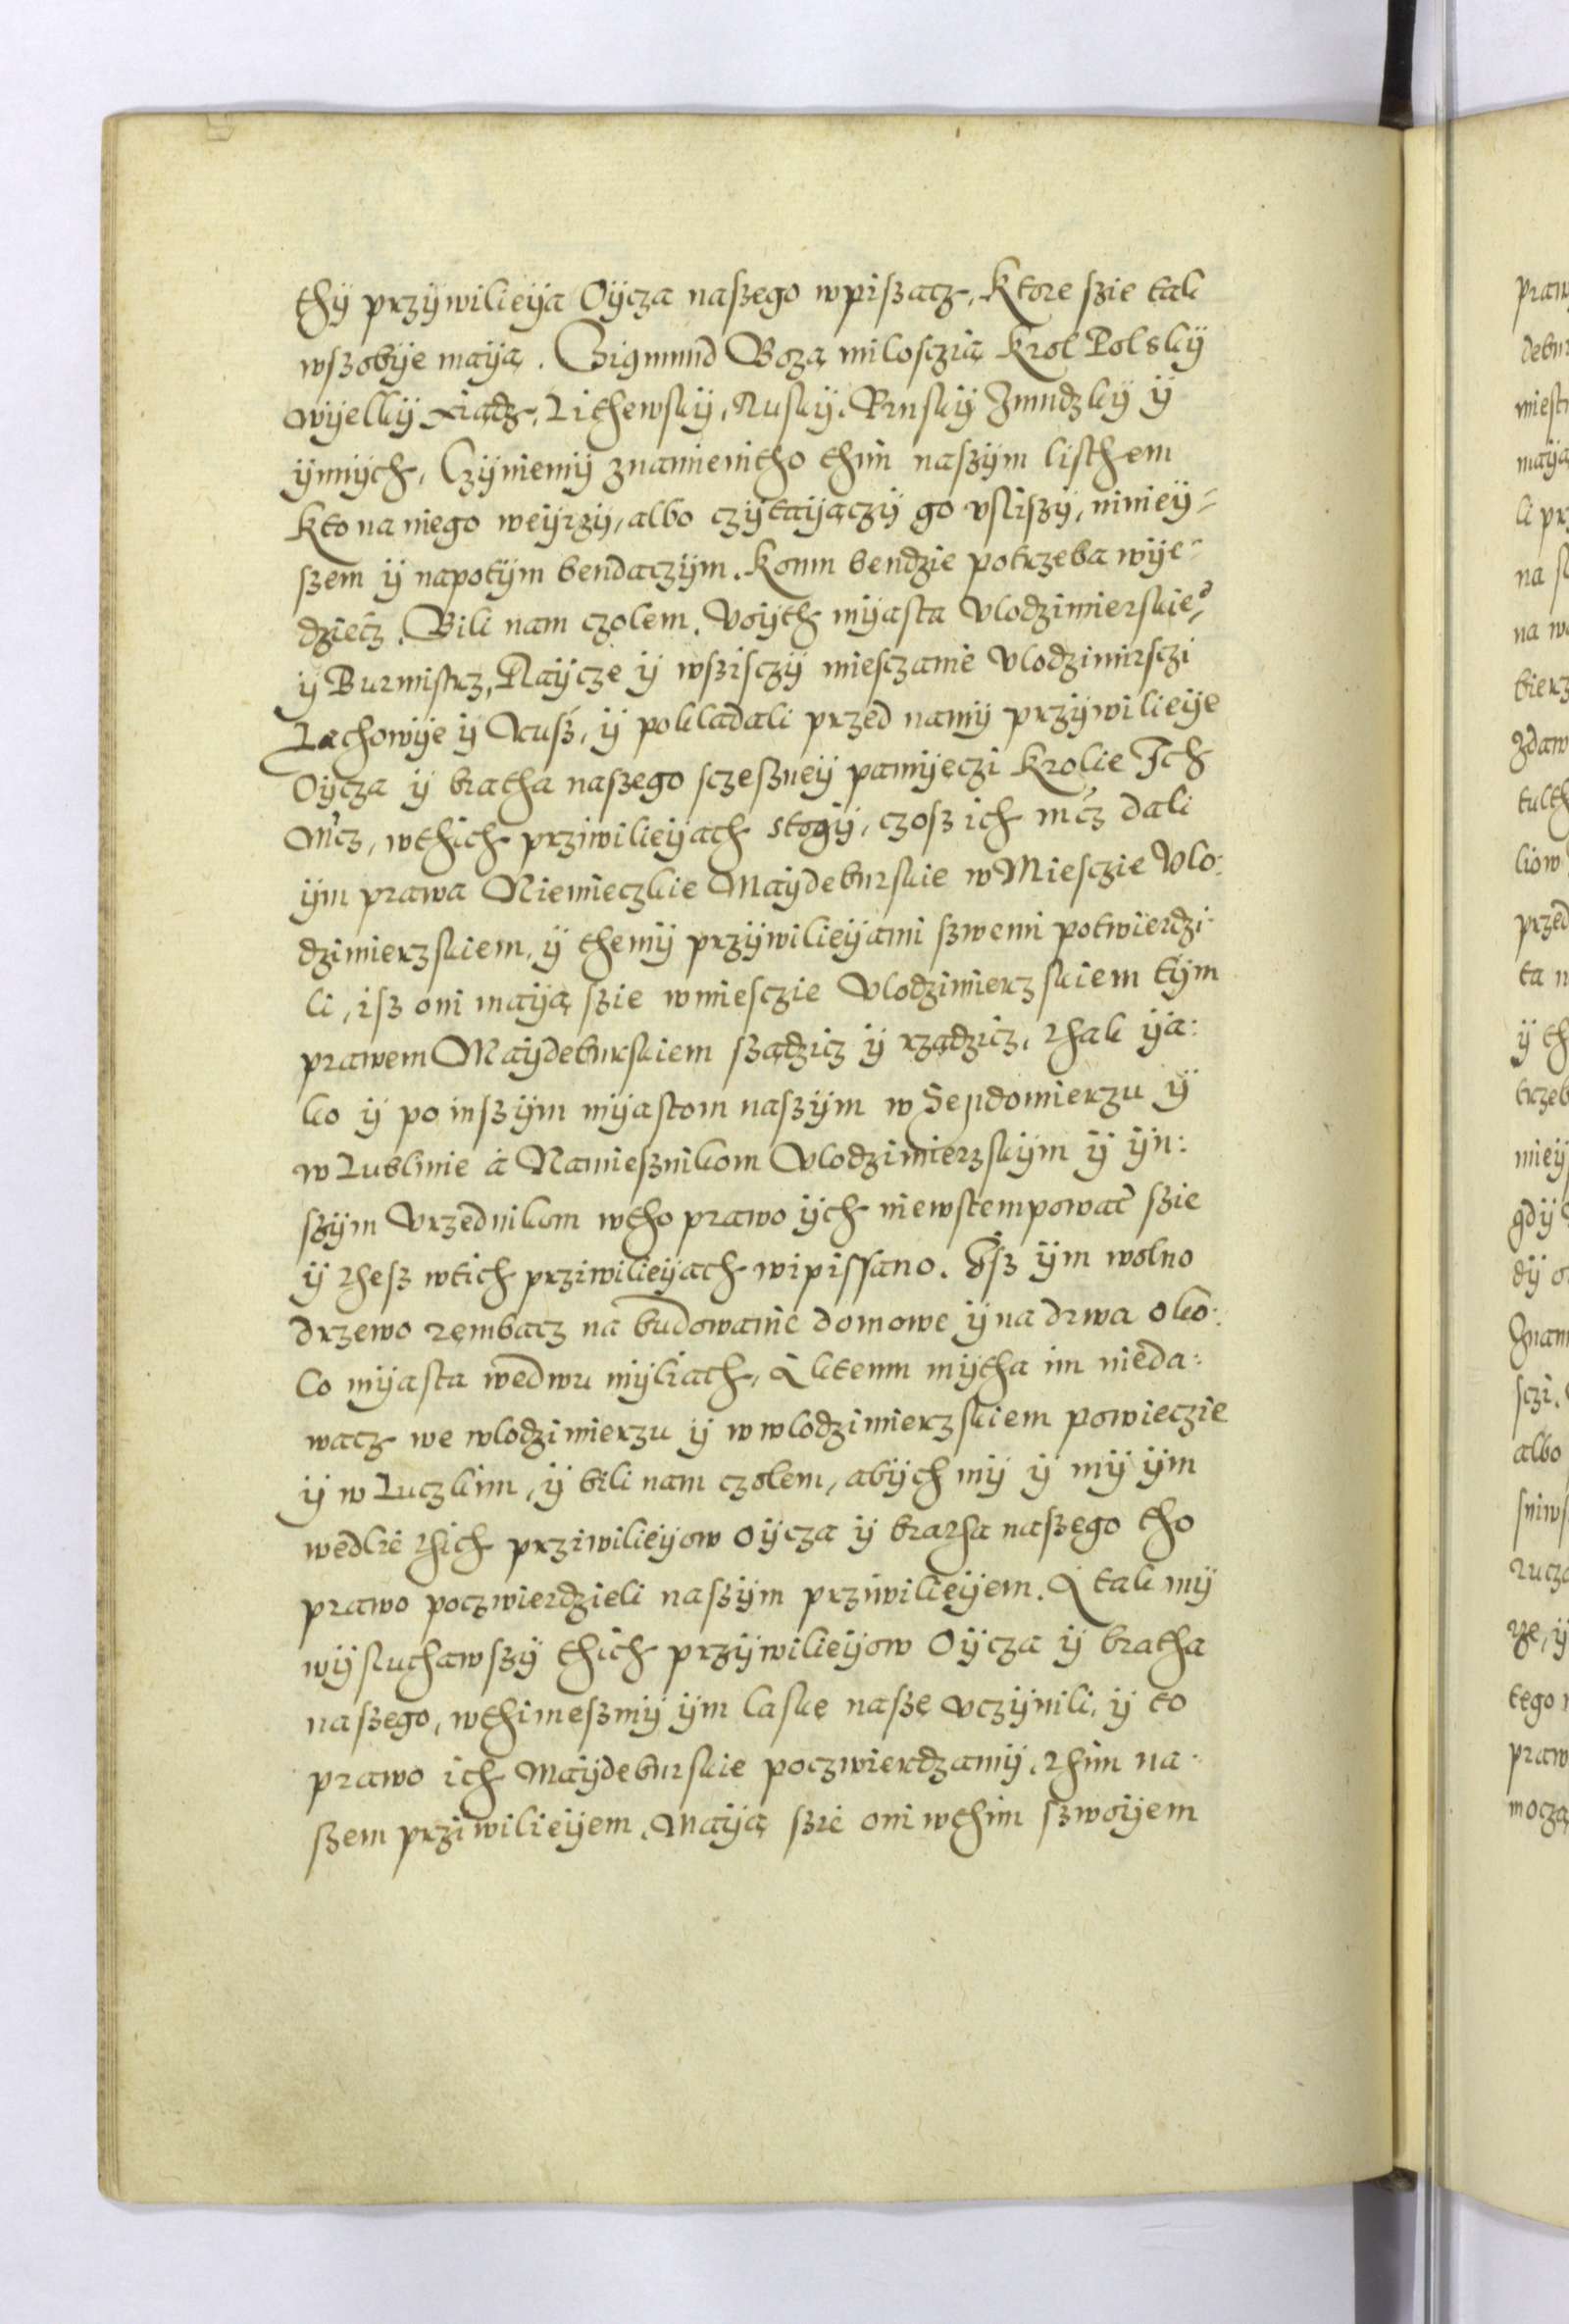 thÿ przÿwilieÿa Oÿcza naszego wpiszacz, Ktore szie tak
wszobÿe maÿą. Zigmund Bożą milosczią Krol Polskÿ
wÿelkÿ xiądz, Lithewskÿ, Ruskÿ, Pruskÿ Zmudzkÿ ÿ
ÿnnÿch, Czÿniemÿ znamienitho thim naszÿm listhem
kto na niego weÿrzÿ, albo czÿtaÿączÿ go vsliszÿ,ninieÿ=
szem ÿ napotÿm bendaczÿm. Komu bendzie potrzeba wÿe=
dziecz. Bili nam czolem. Voÿth mÿasta Vlodzimierskie°
ÿ Burmistrz, Raÿcze ÿ wszisczÿ miesczanie Vlodzimirsczi
Lachowÿe ÿ Rusz, ÿ pokladali przed namÿ przÿwilieÿe
Oÿcza ÿ bratha naszego sczeszneÿ pamÿeczi Krolie Ich
Mcz, wthich prziwilieÿach stogÿ, czosz ich mcz dali
ÿm prawa Niemieczkie Maÿdeburskie w Miesczie Vlo:
dzimierzskiem, ÿ themÿ przÿwilieÿami szwemi potwierdzi-
li, isz oni maÿą szie wmiesczie Vlodzimierzskiem tÿm
prawem Maÿdeburskiem sządzicz ÿ rządzicz, thak ÿa:
ko ÿ po inszÿm mÿastom naszÿm w Sendomierzu ÿ
w Lublinie à Namiesznikom Vlodzimierzskÿm ÿ ÿn:
szÿm Vrzednikom wtho prawo ÿch niewstempowac szie
ÿ thesz wtich prziwilieÿach wipissano. Isz ÿm wolno
drzewo rembacz na budowanie domowe ÿ na drwa oko:
lo mÿasta wedwu mÿliach, A ktemu mÿtha im nieda:
wacz we wlodzimierzu ÿ w wlodzimierzskiem powieczie
ÿ w Luczkim, ÿ bili nam czolem, abÿch mÿ ÿ mÿ ÿm
wedlie thich prziwilieÿow oÿcza ÿ bratha naszego tho
prawo poczwierdzieli naszÿm prziwilieÿem. A tak mÿ
wÿsluchawszÿ thich przÿwilieÿow Oÿcza ÿ bratha
naszego, wthimeszmÿ ÿm laskę naszę vczÿnili, ÿ to
prawo ich Maÿdeburskie poczwierdzamÿ, thim na-
szem prziwilieÿem. Maÿą szie oni wthim szwoÿem